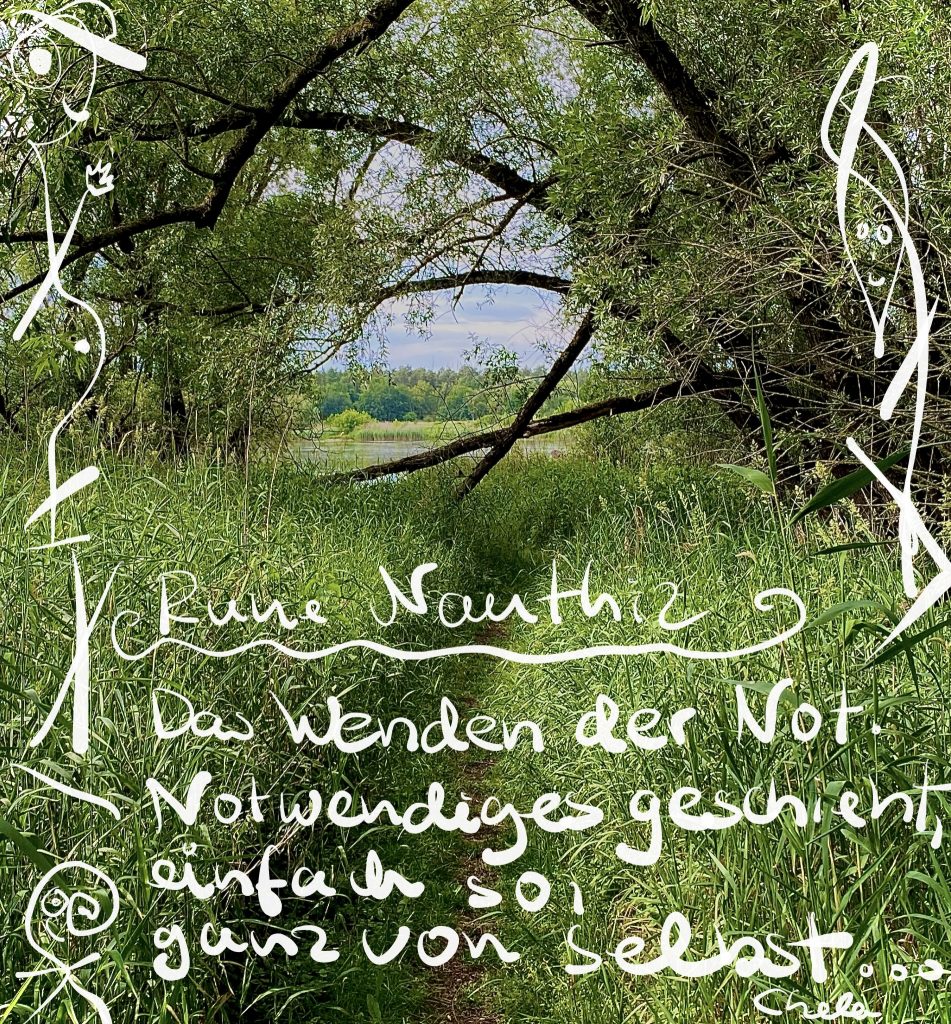 Rune Nauthiz
Das Wenden der Not.
Notwendiges geschieht,
einfach so,
ganz von selbst...
Chela